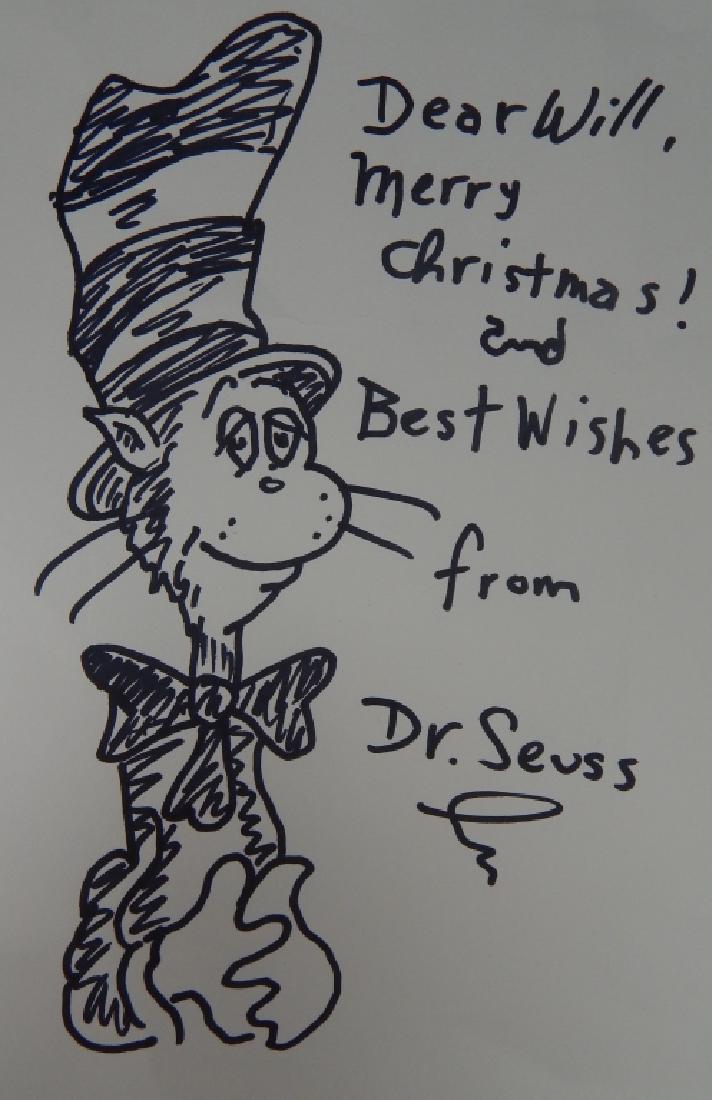 Dear Will,
Merry
Christmas!
and
Best Wishes
from
Dr. Seuss